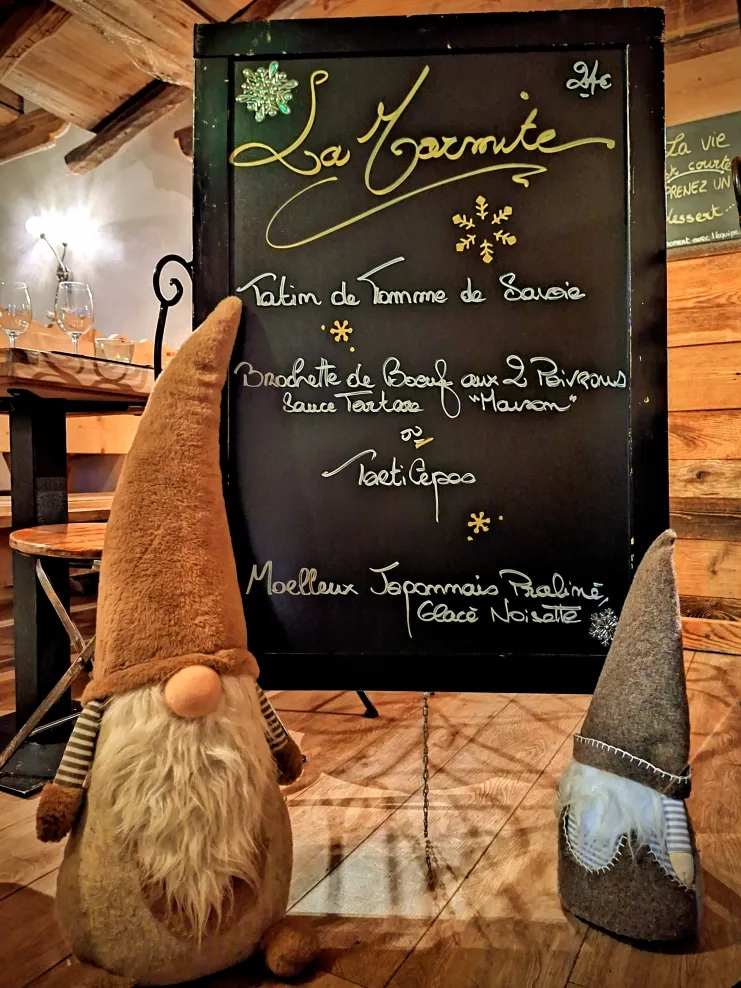 24€
La Marmite
Tatin de Tomme de Savoie
Brochette de Boeuf aux 2 Poivrons
Sauce Tartare "Maison"
ou
Torti Cèpes
Moelleux Japonnais Praliné,
Glace Noisette
La vie
est courte
PRENEZ UN
dessert...